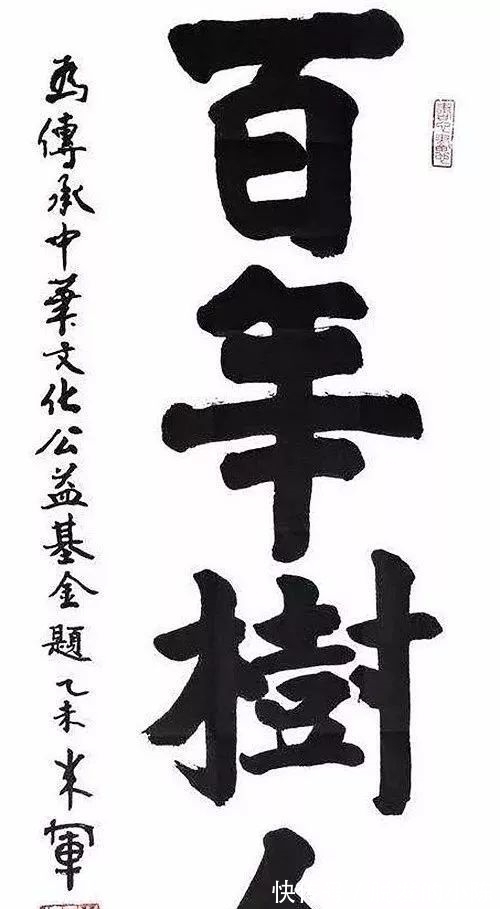 百年樹人
為傳承中華文化公益基金題 乙未 朱軍
快